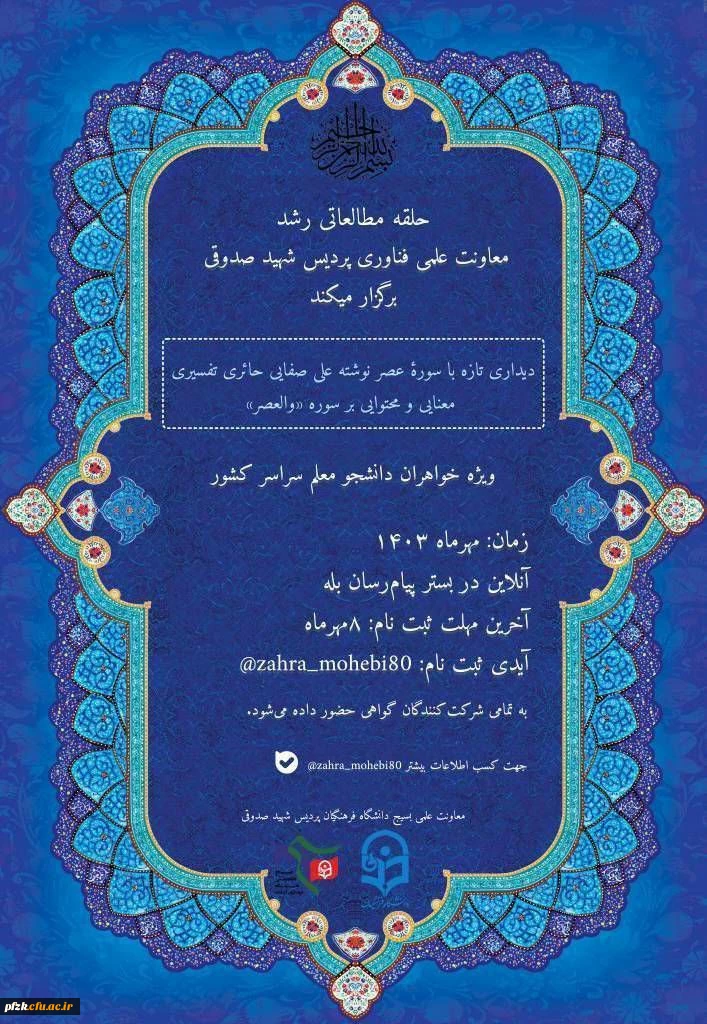 بسم الله الرحمن الرحیم
حلقه مطالعاتی رشد
معاونت علمی فناوری پردیس شهید صدوقی
برگزار میکند
دیداری تازه با سورهٔ عصر نوشته علی صفایی حائری تفسیری
معنایی و محتوایی بر سوره «والعصر»
ویژه خواهران دانشجو معلم سراسر کشور
زمان: مهرماه ۱۴۰۳
آنلاین در بستر پیام‌رسان بله
آخرین مهلت ثبت نام: ۸مهرماه
آیدی ثبت نام: @zahra_mohebi80
به تمامی شرکت‌کنندگان گواهی حضور داده می‌شود.
جهت کسب اطلاعات بیشتر @zahra_mohebi80
معاونت علمی بسیج دانشگاه فرهنگیان پردیس شهید صدوقی
pfzk.cfu.ac.ir